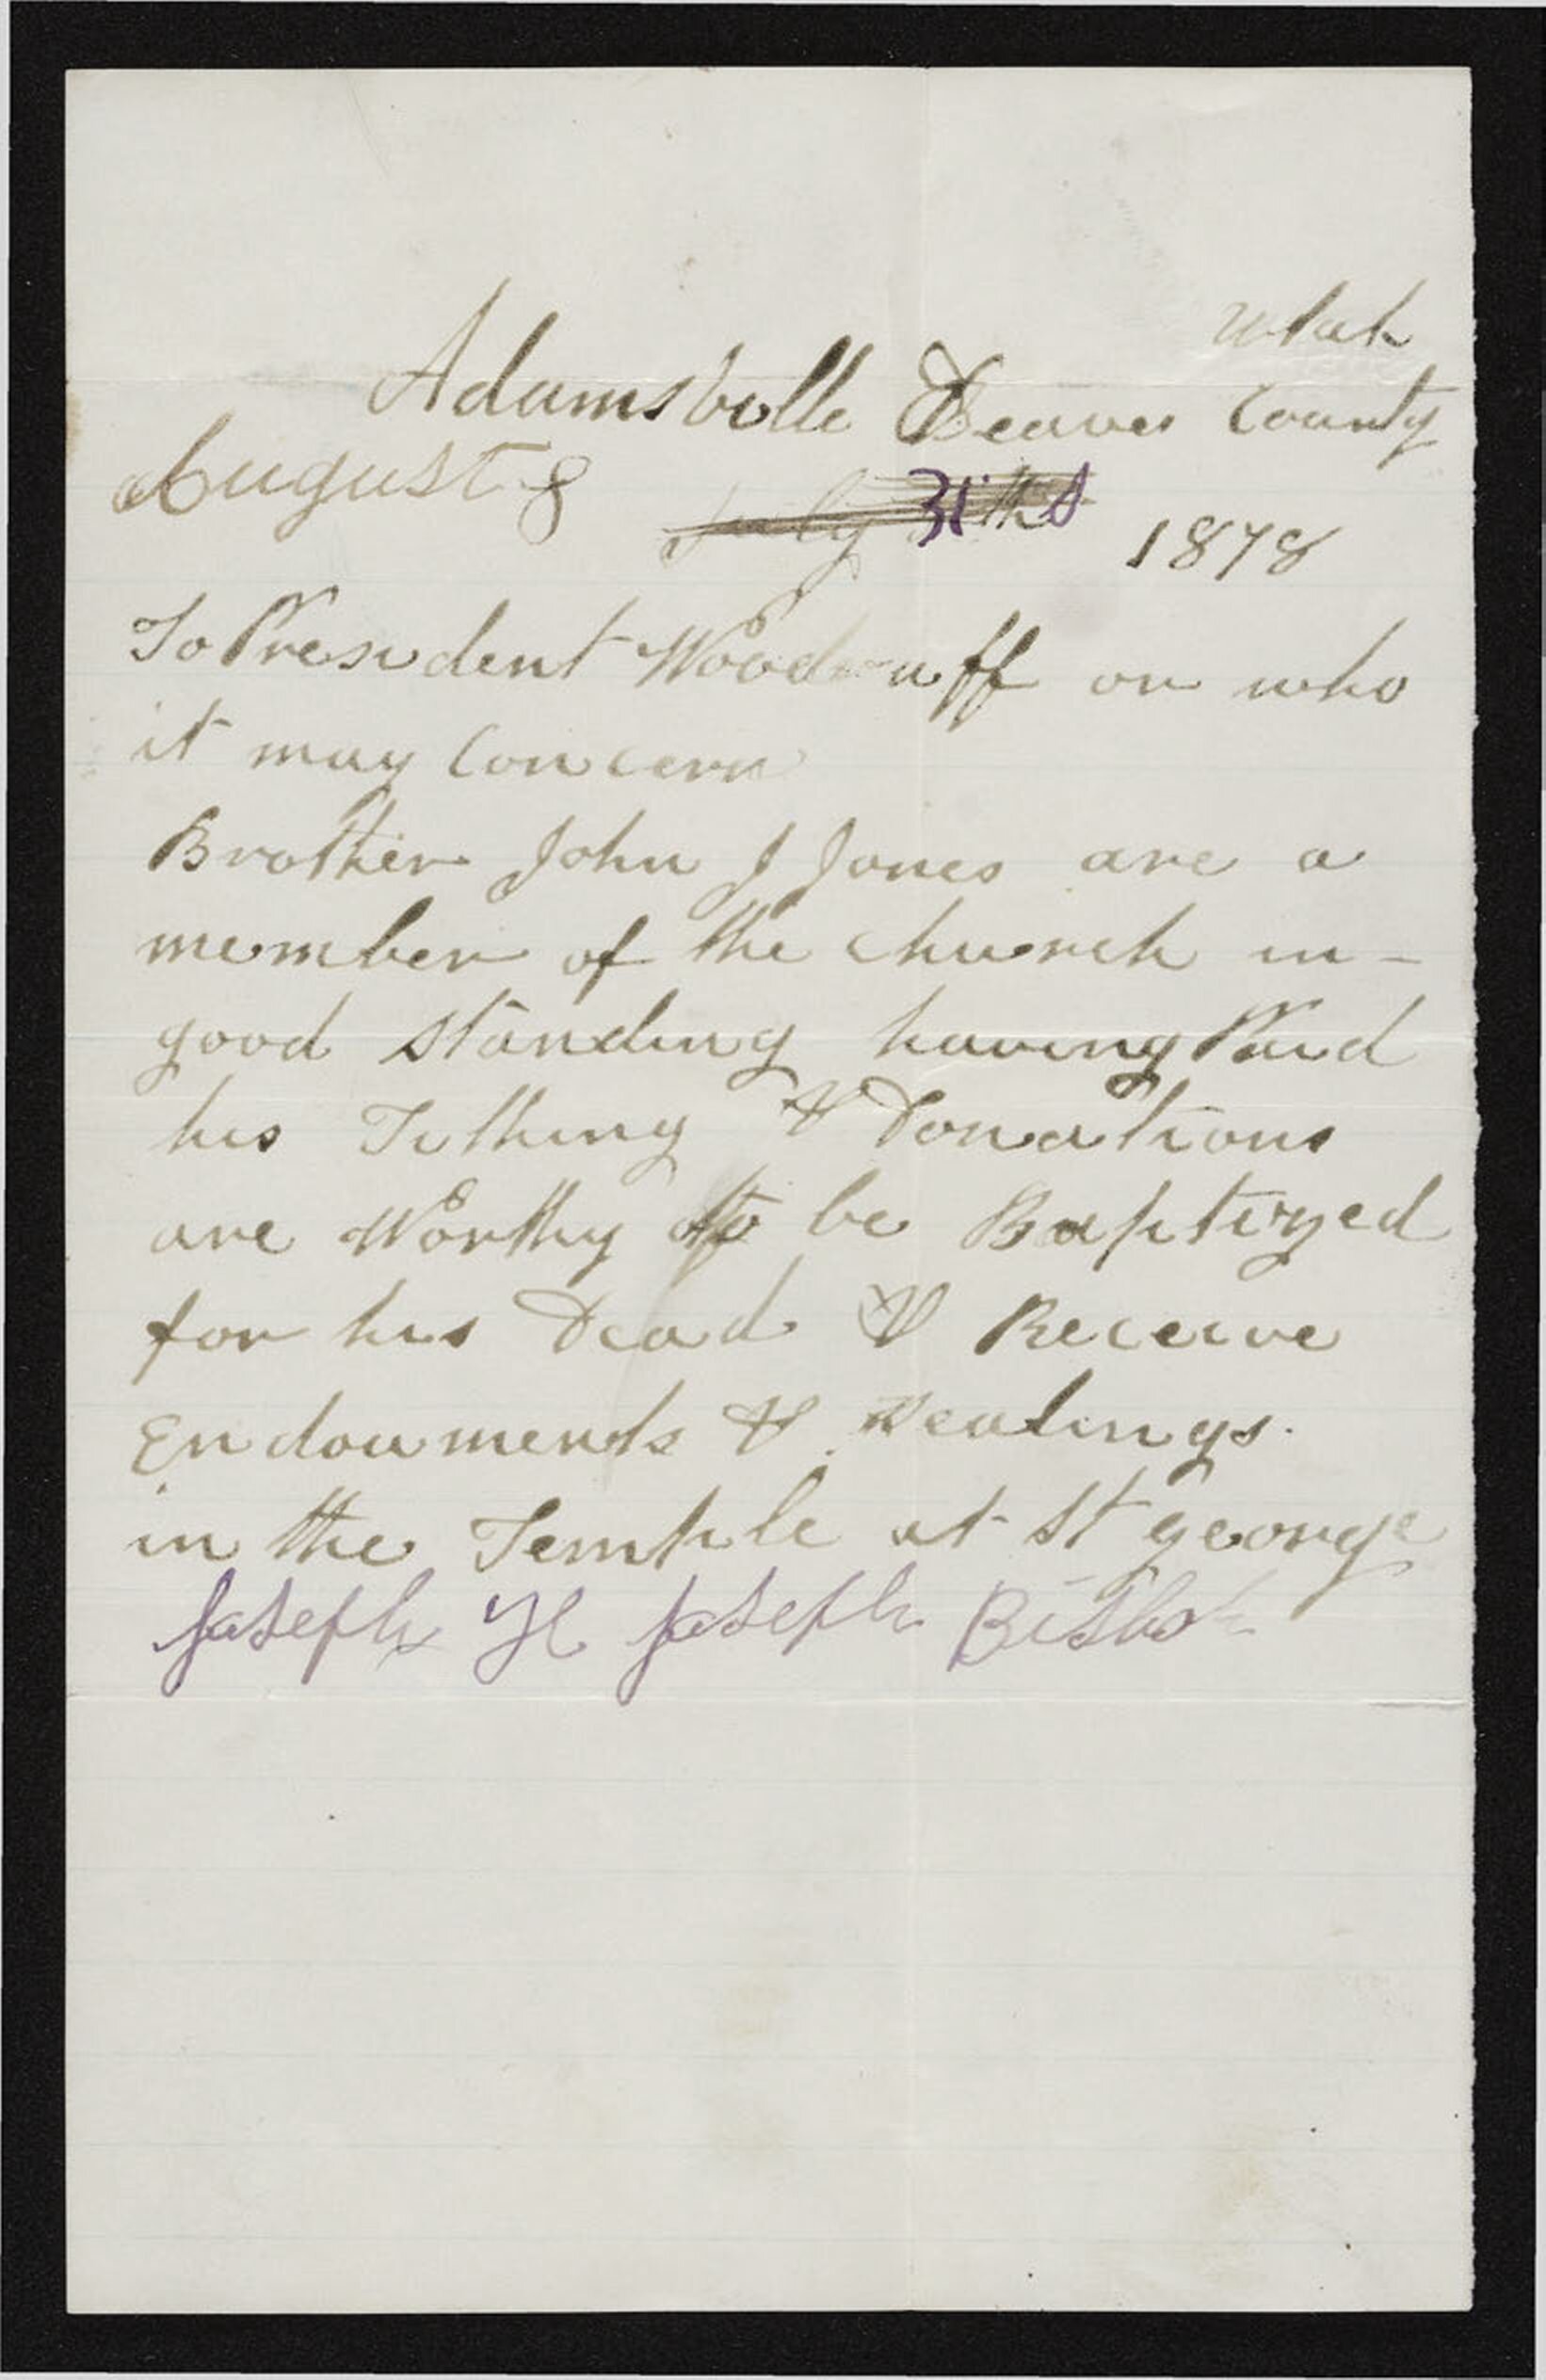 Utah
Adamsville Beaver County
August 8 July 31th 1878
To President Woodruff or who
it may Concern
Brother John J Jones are a
member of the church in-
good standing having Paid
his Tithing & Donations
are Worthy to be Baptized
for his Dead & Receive
Endowments & Sealings.
in the Temple at St george
Joseph H Joseph Bishop